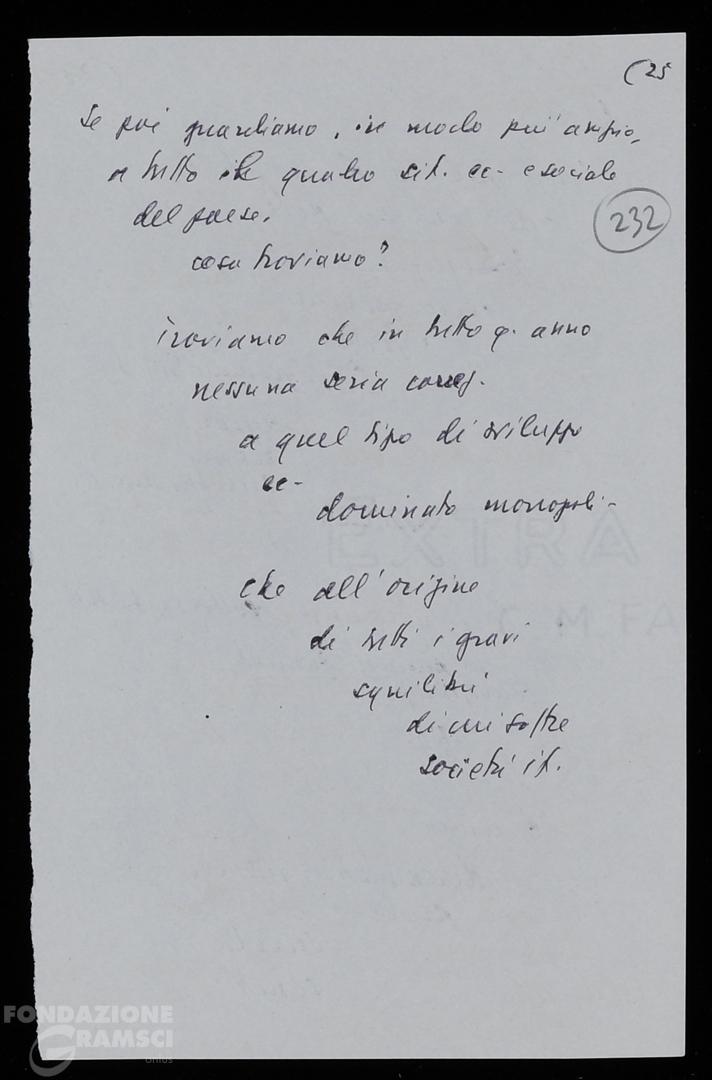 (25
Se poi guardiamo, in modo più ampio,
a tutto il quadro sit. ec- e sociale
del paese.
232
cosa troviamo?
troviamo che in tutto q. anno
nessuna seria correz.
a quel tipo di sviluppo
ec-
dominato monopoli-
EXTRA
che all'origine
M. FA
di tutti i gravi
squilibri
di cui soffre
società it.
FONDAZIONE
GRAMSCI
onlus